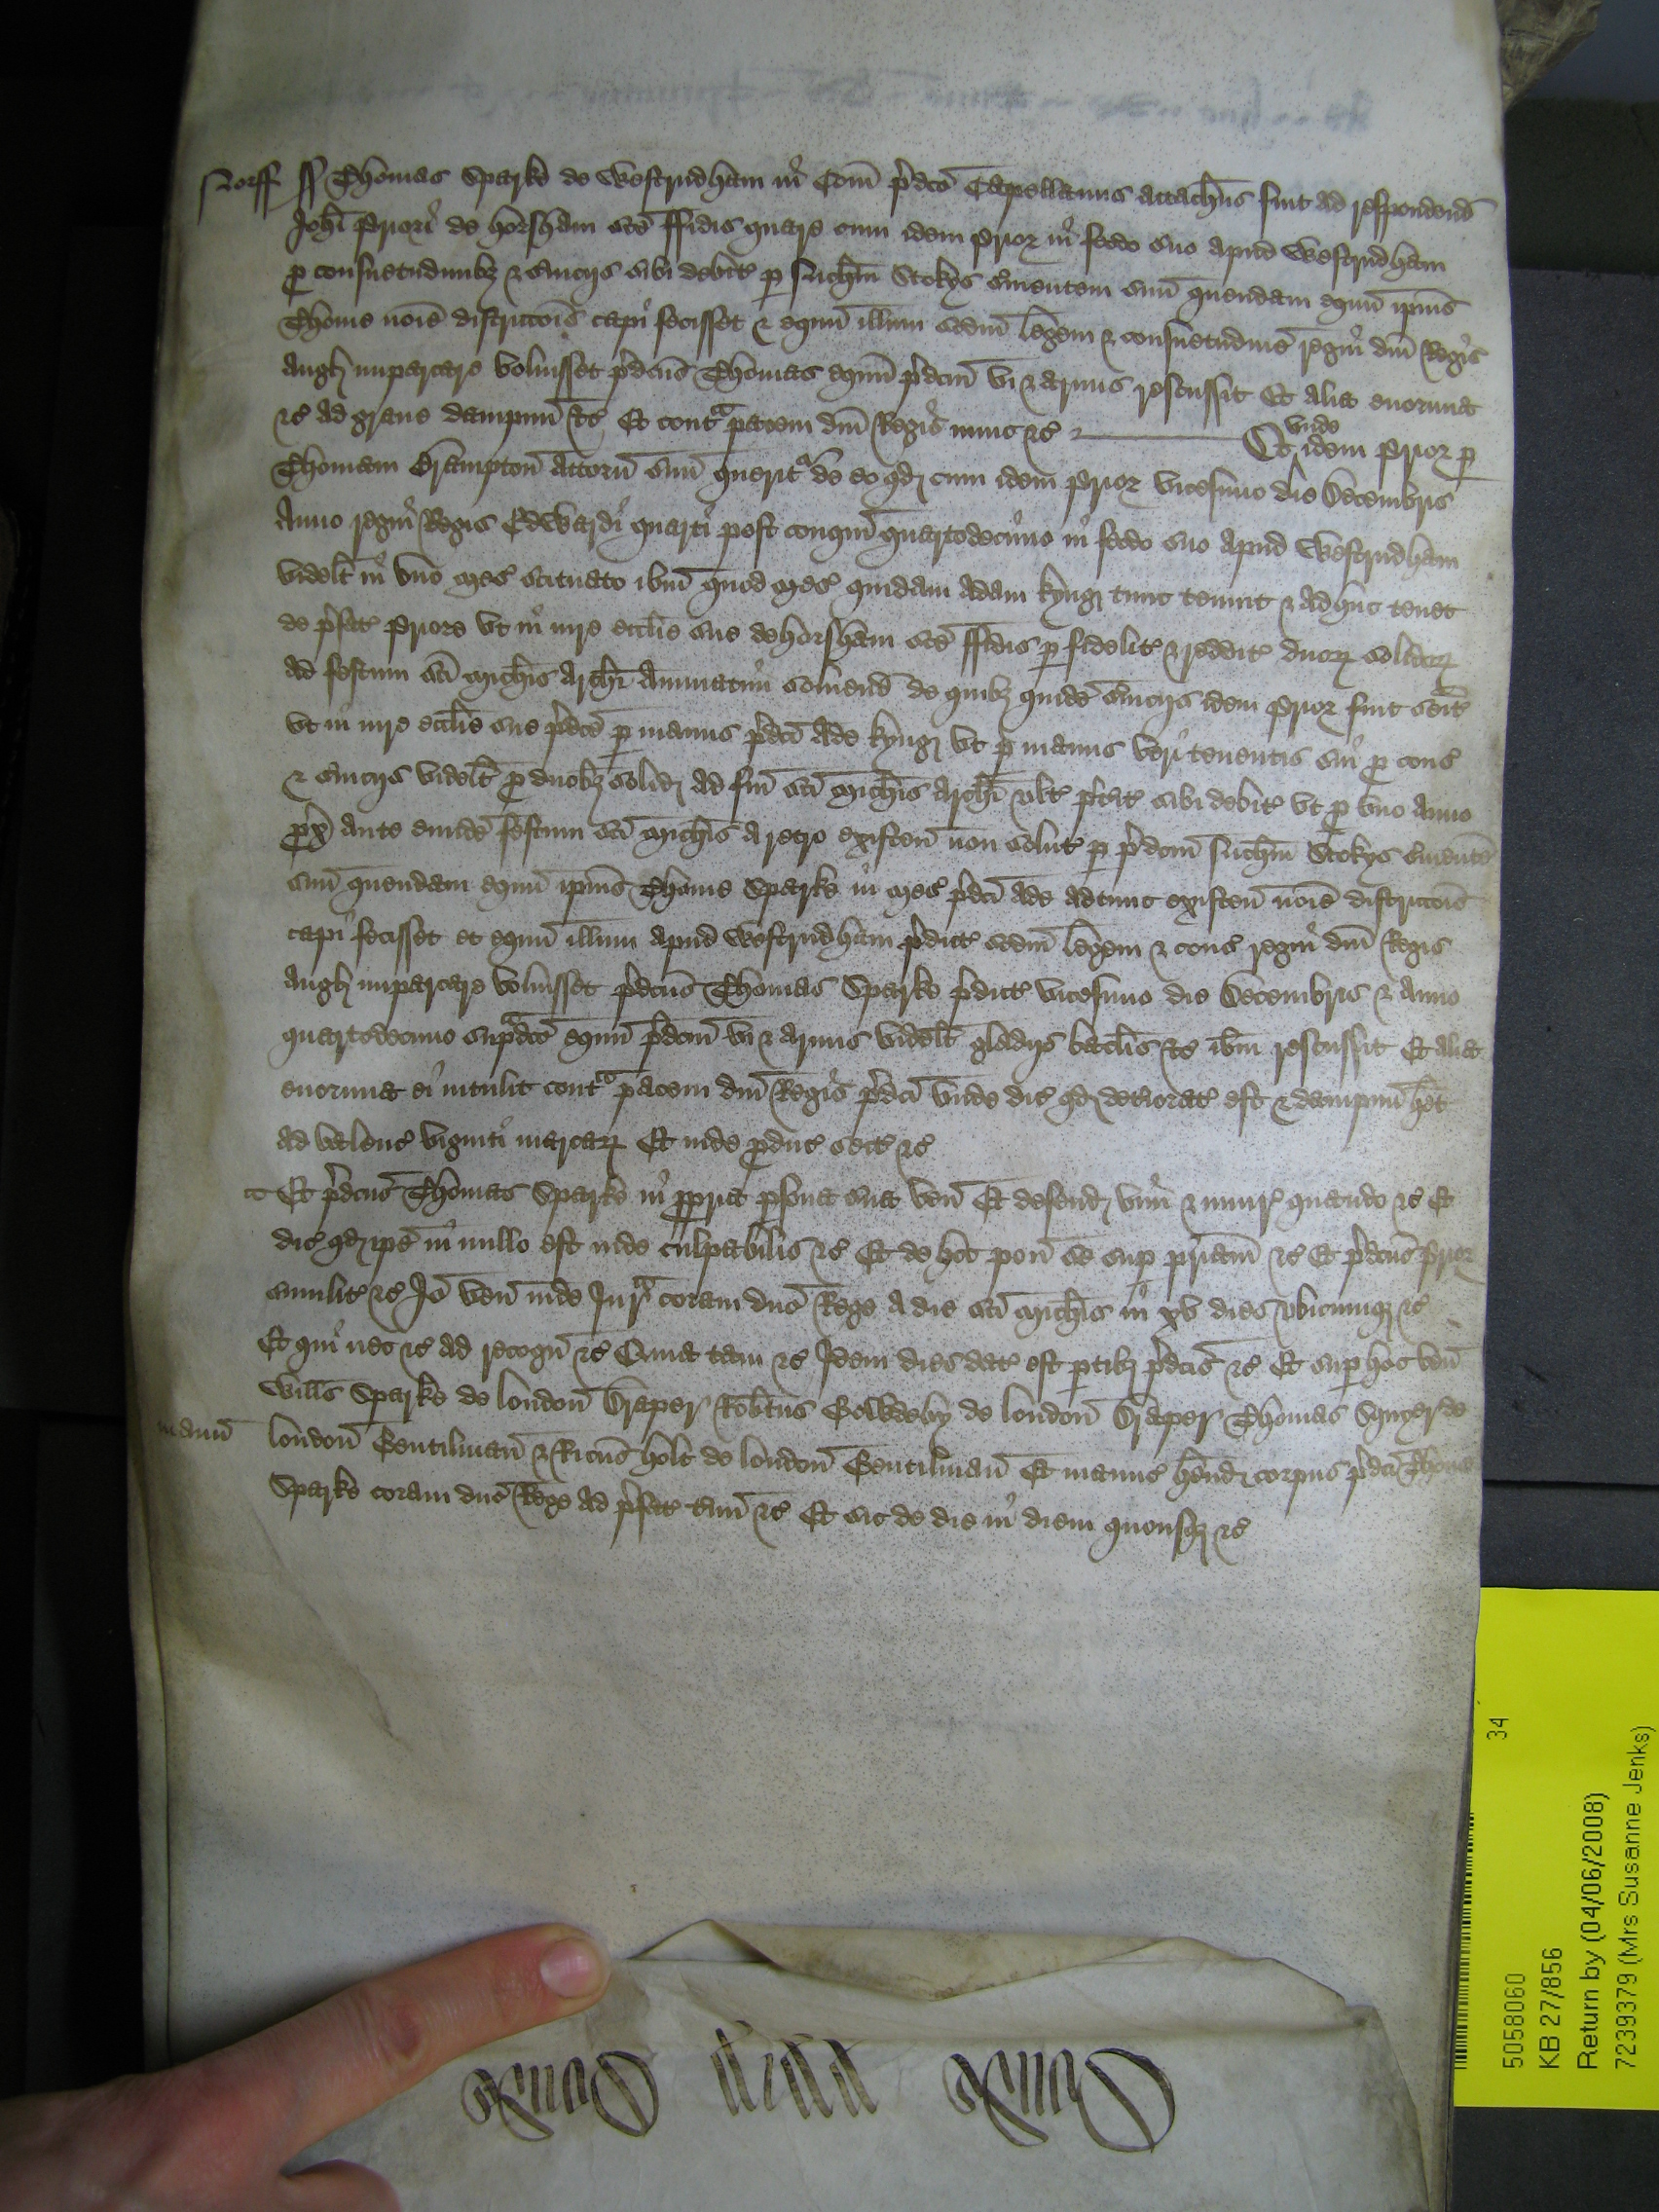 Norff ss Thomas Sparke de Westrudham in Com̃ p̃dc̃o Capellanus attach̃us fuit ad respondend̃
Joh̃i Priori de horsham sc̃e ffidis quare cum idem Prior in feodo suo apud Westrudham
p̱ consuetudinibȝ ⁊ s̃uicijs sibi debit̃ p̱ Stokys s̃uientem suũ quendam equũ ip̃ius
Thome noĩe districc̃ois capi fecisset ⁊ equũ illum scdm̃ legem ⁊ consuetudinẽ regni dñi Regis
Angl̃ imparcare voluisset p̃dc̃us Thomas equũ p̃dcm̃ vi ⁊ armis rescussit Et alia enormia
⁊c̃ ad graue dampnũ ⁊c̃ Et cont̃ᵃ pacem dñi Regis nunc ⁊c̃ Et vnde idem Prior p̱
Thomam Brampton̄ attorñ suũ queritᵘ̃ de eo qd̃ cum idem Prior vicesimo die Decembris
Anno regni Regis Edwardi quarti post conqm̃ quartodecimo in feodo suo apud Westrudham
videlt̃ in vno mes̃ scituato ibm̃ quod mes̃ quidam Adam Kyng̃ tunc tenuit ⁊ adhuc tenet
de p̃fat̃ Priore vt in iure ecclie sue de horsham sc̃e ffidis p̱ fidelit̃ ⁊ reddit̃ duoꝝ solidoꝝ
ad festum sc̃i Mich̃is Arch̃i Annuatim soluend̃ de quibȝ quidẽ s̃uicijs idem Prior fuit seit̃
vt in iure ecclie sue p̃dc̃e p̱ manus p̃dc̃i Ade Kyng̃ vt p̱ manus veri tenentis sui p̱ cons̃
⁊ s̃uicijs videlt̃ p̱ duobȝ solid̃ ad fm̃ sc̃i Mich̃is Arch̃i vlt̃ p̃tit̃ sibi debit̃ vt p̱ vno Anno
p̱x̃ ante eundẽ festum sc̃i Mich̃is a retro existen̄ non solut̃ p̱ p̃dcm̃ Stokys s̃uientẽ
suũ quendam equũ ip̃ius Thome Sparke in mes̃ p̃dc̃i Ade adtunc existen̄ noĩe districc̃ois
capi fecisset et equũ illum apud Westrudham p̃dict̃ scdm̃ legem ⁊ cons̃ regni dñi Regis
Angl̃ imparcare voluisset p̃dc̃us Thomas Sparke p̃dict̃ vicesimo die Decembris ⁊ Anno
quartodecimo sup̃ᵃdc̃o equũ p̃dcm̃ vi ⁊ armis videlt̃ gladijs baclis ⁊c̃ ibm̃ rescussit Et alia
enormia ei intulit cont̃ᵃ pacem dñi Regis p̃dc̃i vnde dic̃ qd̃ deteriorat̃ est ⁊ dampnũ het̃
ad valenc̃ viginti marcaꝝ Et inde p̱duc̃ sect̃ ⁊c̃
Et p̃dc̃us Thomas Sparke in p̱pria p̱sona sua ven̄ Et defend̃ vim ⁊ iniur̃ quando ⁊c̃ Et
dic̃ qd̃ ip̃e in nullo est inde culpabilis ⁊c̃ Et de hoc pon̄ se sup̱ pr̃iam ⁊c̃ Et p̃dc̃us Prior
similit̃ ⁊c̃ Jõ ven̄ inde Jurᵃ̃ coram dño Rege a die sc̃i Mich̃is in xv dies vbicumqȝ ⁊c̃
Et qui nec ⁊c̃ ad recogn̄ ⁊c̃ Quia tam ⁊c̃ Idem dies dat̃ est p̱tibȝ p̃dc̃is ⁊c̃ Et sup̱ hoc ven̄
Wills̃ Sparke de london̄ Draper Rob̃tus de london̄ Draper Thomas de
manuc̃ london̄ Gentilman̄ ⁊ Ricũs holt de london̄ Gentilman̄ Et manuc̃ hẽnd̃ corpus p̃dc̃i Thome
Sparke coram dño Rege ad p̃fat̃ t̃mi ⁊c̃ Et sic de die in diem quousqȝ ⁊c̃
5058060
34
KB 27/856
Return by (04/06/2008)
7239379 (Mrs Susanne Jenks)